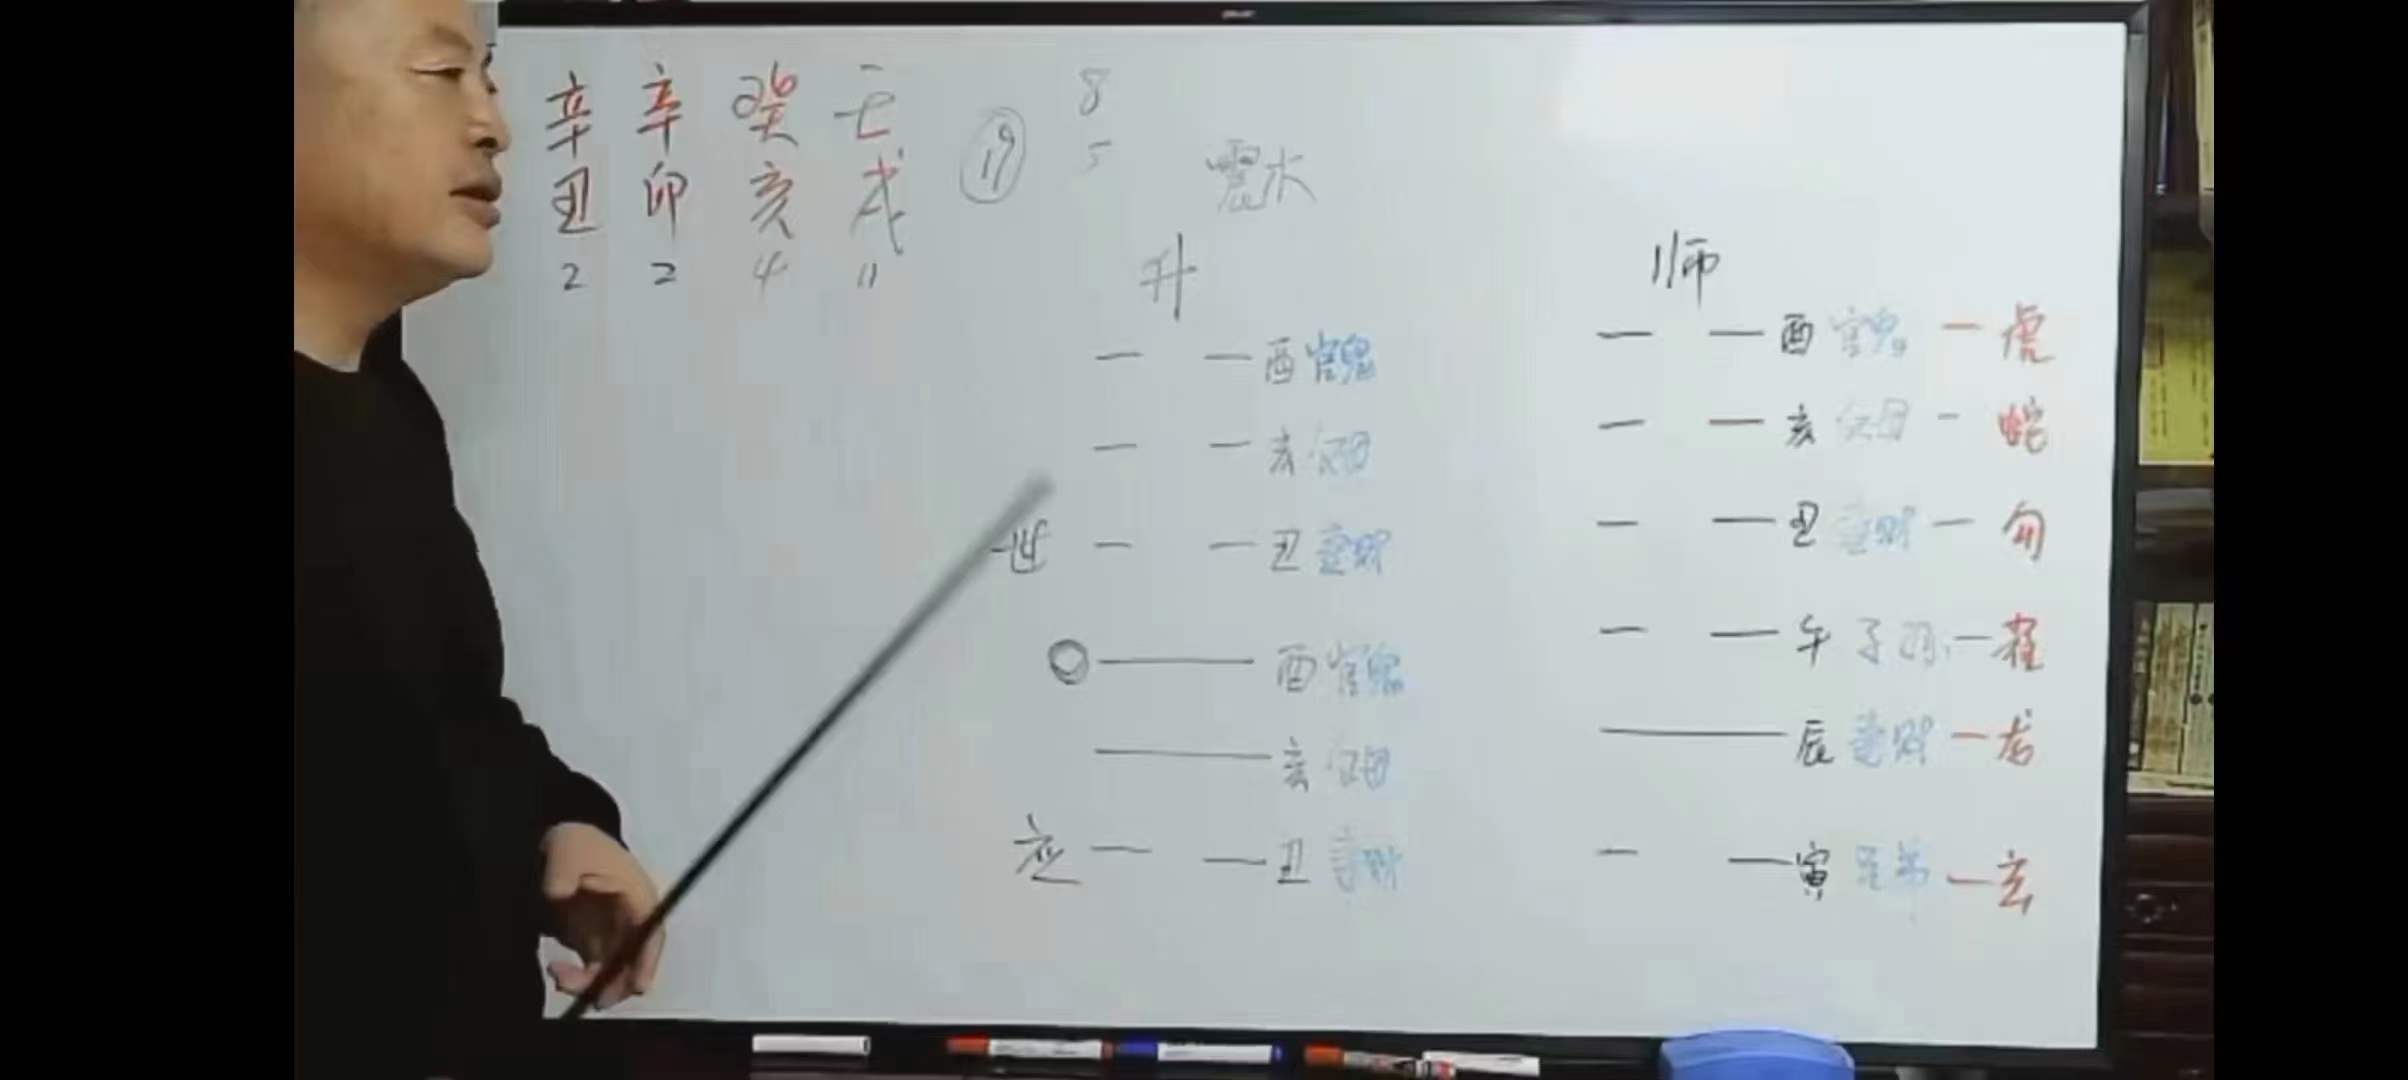 辛 辛 癸 壬
丑 卯 亥 戌
2 2 4 11
19
8
5
震木
升
酉 官鬼
亥 父母
世 丑 妻财
酉 官鬼
亥 父母
应 丑 妻财
师
酉 官鬼 虎
亥 父母 蛇
丑 妻财 勾
午 子孙 雀
辰 妻财 龙
寅 兄弟 玄